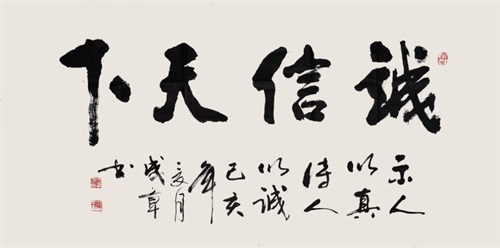 誠信天下
示人
以真
待人
以誠
己亥
年
夏月
成章
书